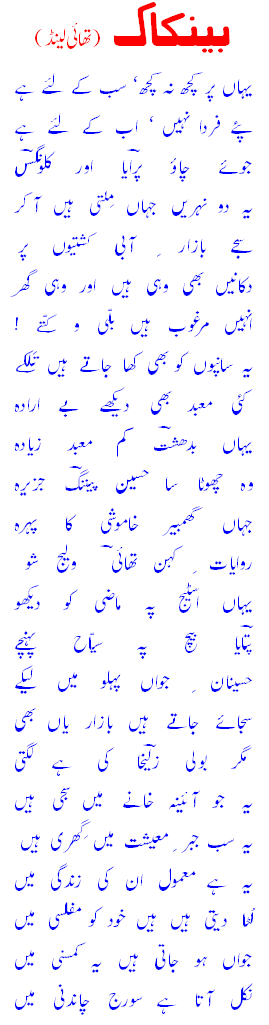 بینکاک (تھائی لینڈ)
یہاں پر کچھ نہ کچھ، سب کے لئے ہے
پئے فردا نہیں، اب کے لئے ہے
جوئے چاؤ پرایا اور کلونگس
یہ دو نہریں جہاں مِلتی ہیں آ کر
سجے بازار ِ آبی کشتیوں پر
دکانیں بھی وہی ہیں اور وہی گھر
اُنہیں مرغوب ہیں بلّی و کتّے !
یہ سانپوں کو بھی کھا جاتے ہیں تَلکے
کئی معبد بھی دیکھے بے ارادہ
یہاں بدھشٹ کم معبد زیادہ
وہ چھوٹا سا حسین پیننگ جزیرہ
جہاں گھمبیر خاموشی کا پہرہ
روایات ِ کہن تھائی ولیج شو
یہاں اسٹیج پہ ماضی کو دیکھو
پتایا بیچ پہ سیّاح پہنچے
حسینان ِ جواں پہلو میں لیکے
سجائے جاتے ہیں بازار یاں بھی
مگر بولی زلیخا کی ہے لگتی
یہ جو آئینہ خانے میں سجی ہیں
یہ سب جبر ِ معیشت میں گھِری ہیں
یہ ہے معمول ان کی زندگی میں
لُٹا دیتی ہیں ہیں خود کو مفلسی میں
جواں ہو جاتی ہیں یہ کمسنی میں
نکل آتا ہے سورج چاندنی میں